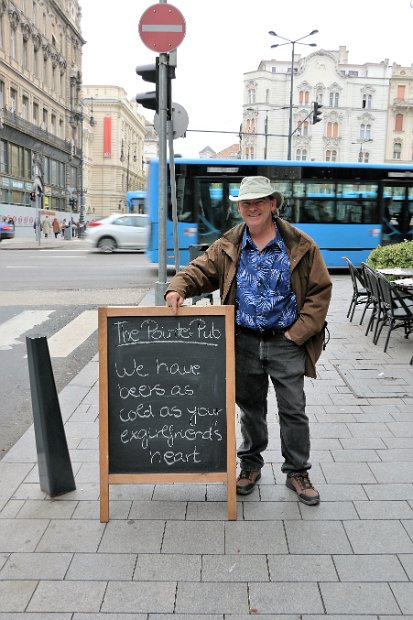 The Pointer Pub
We have
beers as
cold as your
exgirlfriend's
heart